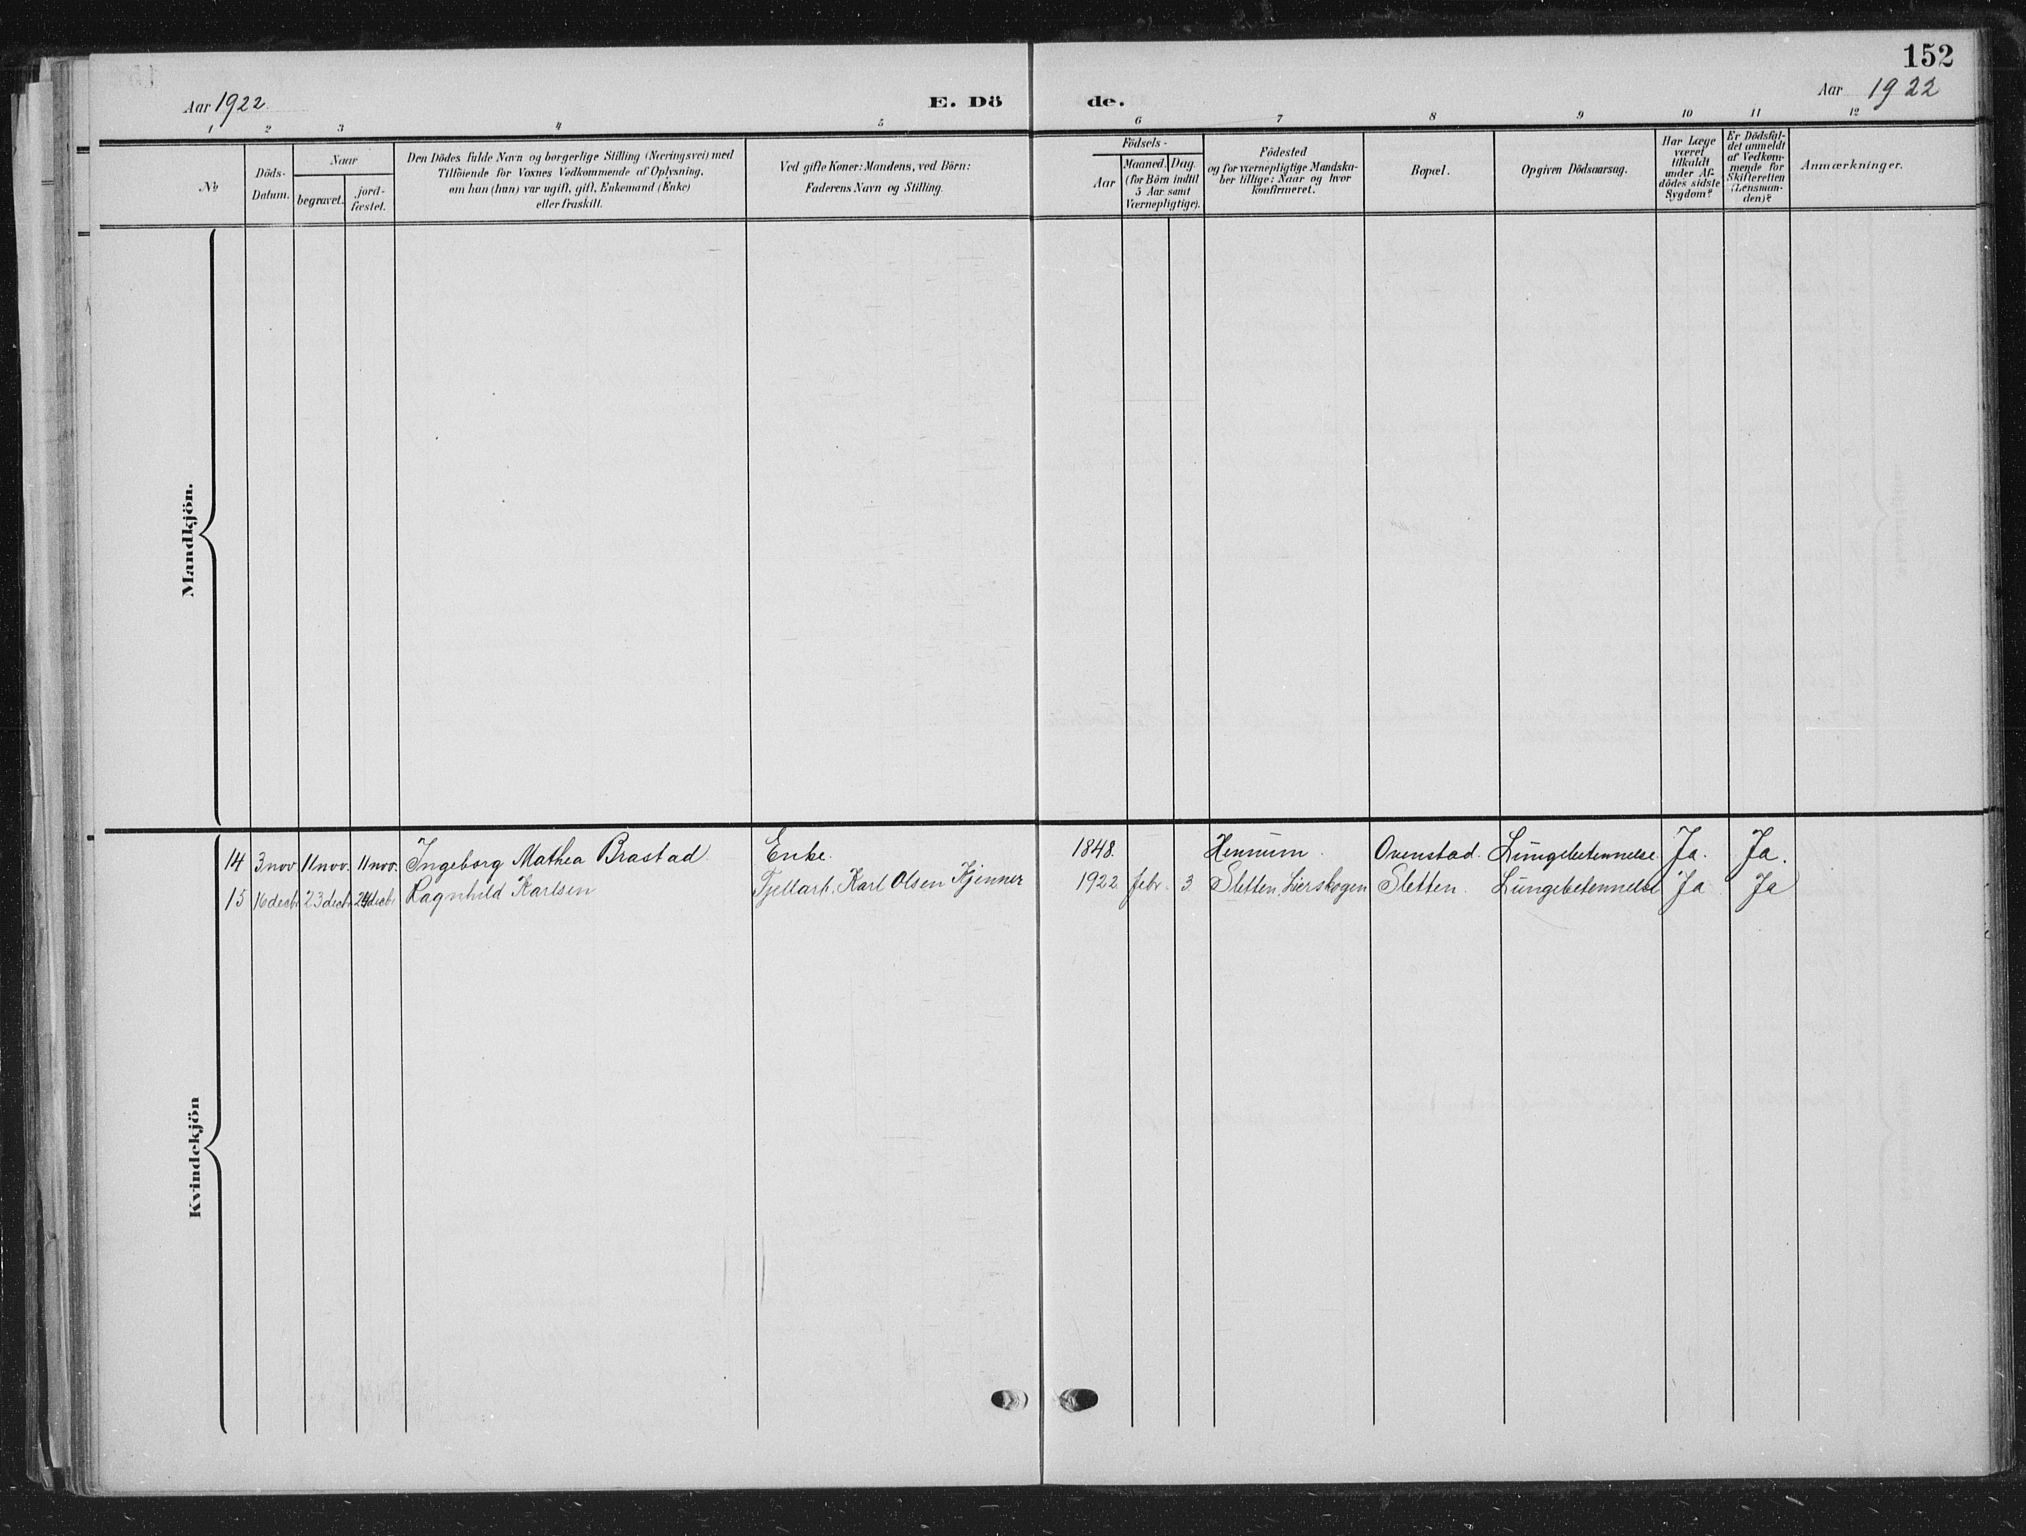 152
Aar 1922
E. Dö
de.
Aar 1922
1 2 3 4 5 6 7 8 9 10 11 12
No
Döds-
Datum.
Naar
begravet.
jord-
fæstet.
Den Dödes fulde Navn og borgerlige Stilling (Næringsvei) med
Tilföiende for Voxnes Vedkommende af Oplysning,
om han (hun) var ugift, gift, Enkemand (Enke)
eller fraskilt.
Ved gifte Koner: Mandens, ved Börn:
Faderens Navn og Stilling.
Födsels-
Aar
Maaned. Dag.
(for Börn indtil
5 Aar samt
Værnepligtige).
Födested
og for værnepligtige Mandska-
ber tillige: Naar og hvor
konfirmeret.
Bopæl.
Opgiven Dödsaarsag.
Har Læge
været
tilkaldt
under Af-
dödes sidste
Sygdom?
Er Dödsfal-
det anmeldt
af Vedkom-
mende for
Skifteretten
(Lensman-
den)?
Anmærkninger.
Mandkjön.
14 3 nov 11 nov. 11 nov. Ingeborg Mathea Brastad Enke. 1848. Hennum. Ovenstad. Lungebetennelse Ja. Ja.
15 16 decbr 23 decbr 24 decbr Ragnhild Karlsen Fjellarb. Karl Olsen Kjenner 1922 febr. 3 Sletten, Lierskogen Sletten. Lungebetennelse Ja Ja
Kvindekjön